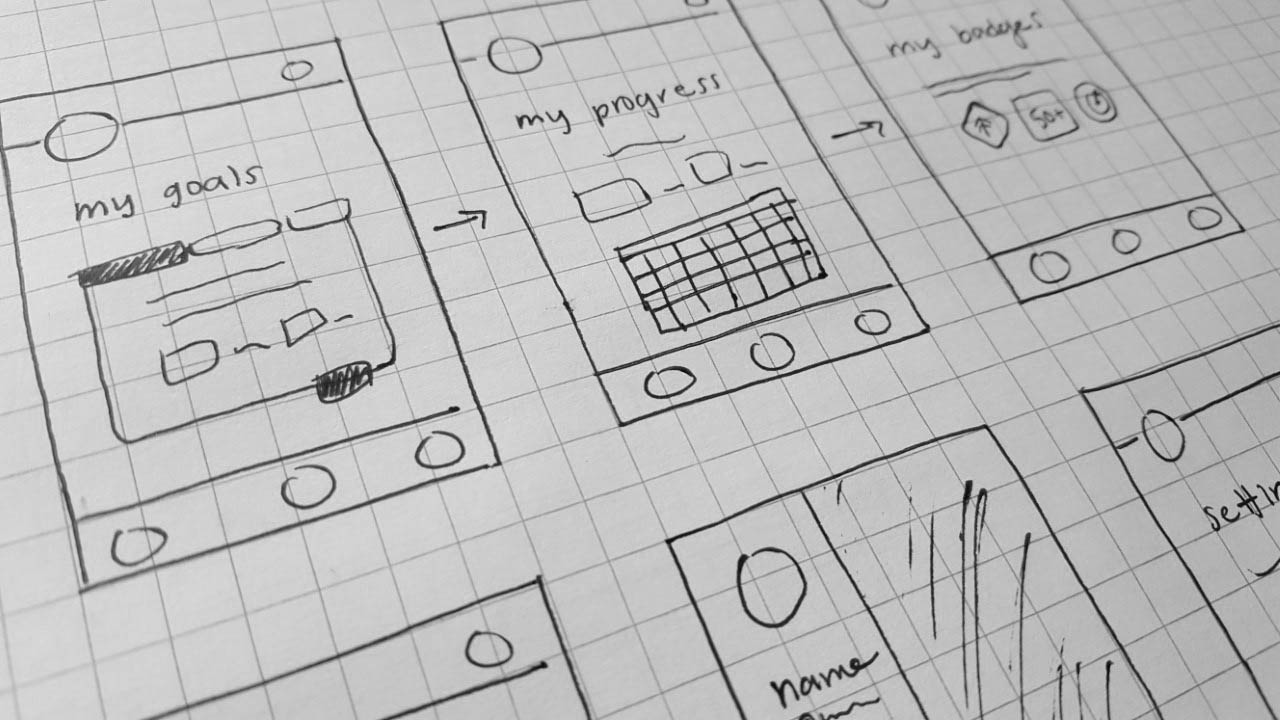 my goals
my progress
my badges
50+
name
settin